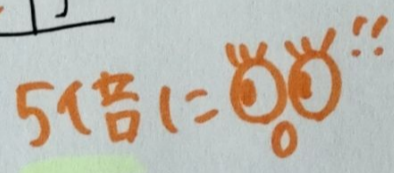 5倍に!!